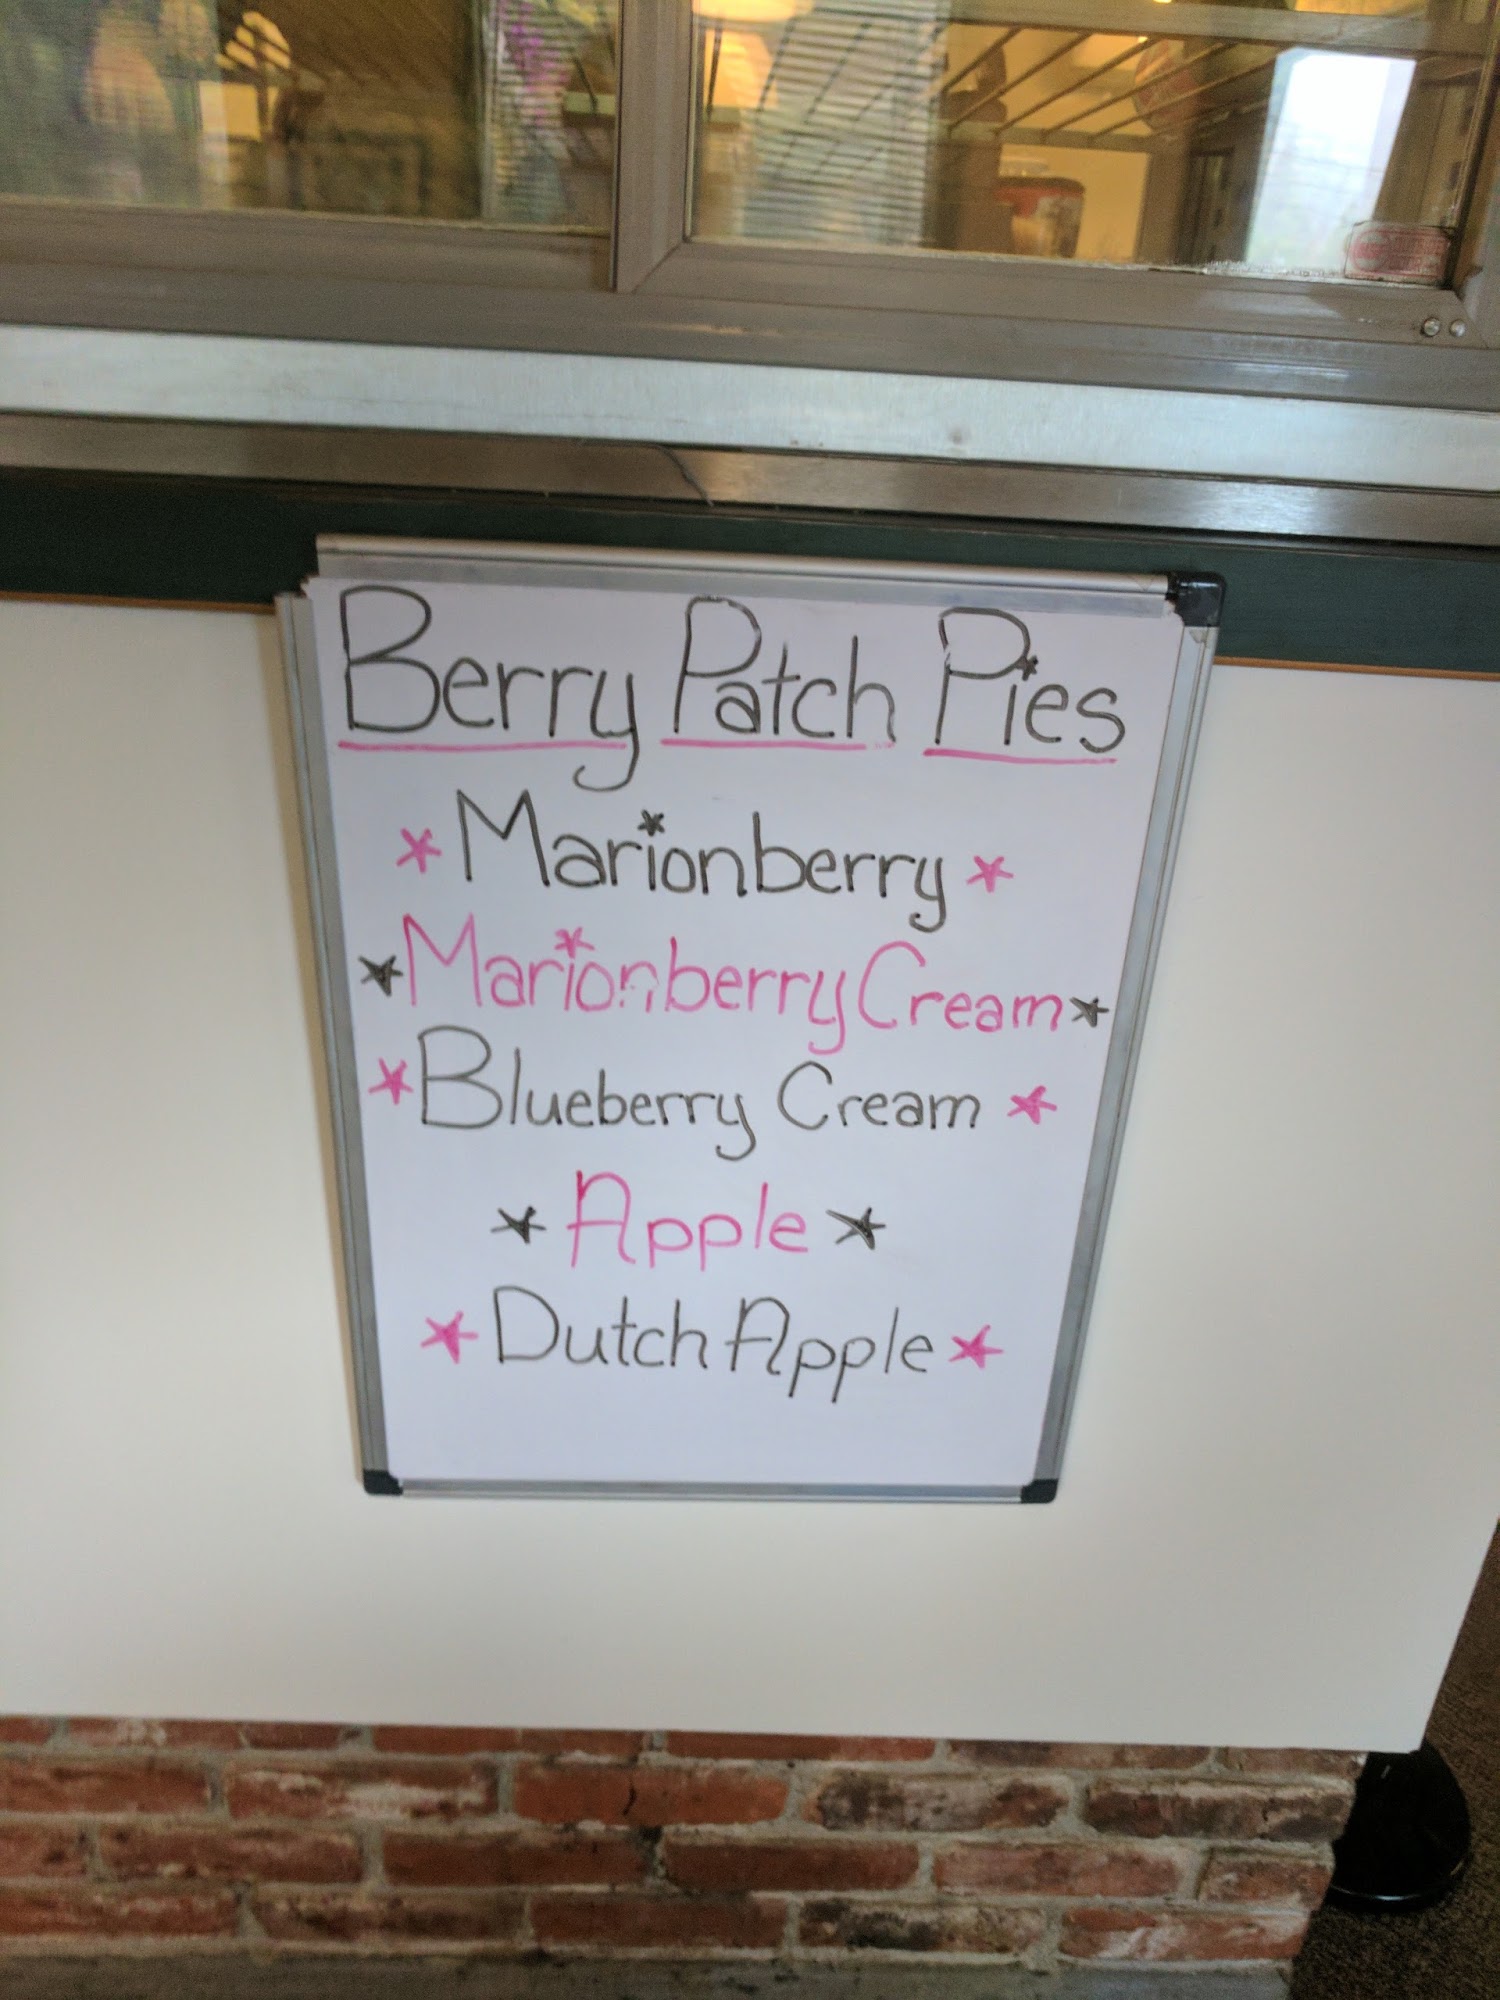 Berry Patch Pies
Marionberry
Marionberry Cream
Blueberry Cream
Apple
Dutch Apple